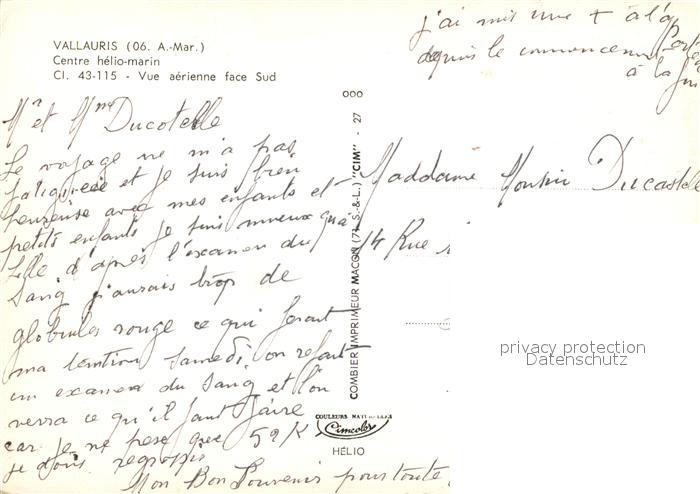 VALLAURIS (06. A.-Mar.)
Centre hélio-marin
Cl. 43-115 - Vue aérienne face Sud
j'ai mis une + à l'
depuis le commencem
à la
Mr et Mme Ducotelle
Le voyage ne m'a pas
fatiguée et je suis bien
heureuse avec mes enfants et
petits enfants je suis mieux qu'à
Lille d'après l'examen du
Sang j'aurais trop de
globules rouge ce qui ferait
ma tention Samedi on refait
un examen du Sang et l'on
verra ce qu'il faut faire
car je ne pese que 52 K
je dois
Mon Bon Souvenir pour toute
ooo
COMBIER IMPRIMEUR MACON (71 S.-&-L.) "CIM" - 27
Maddame Ducastelle
14 Rue
COULEURS NATURELLES
Cimcolor
HÉLIO
privacy protection
Datenschutz